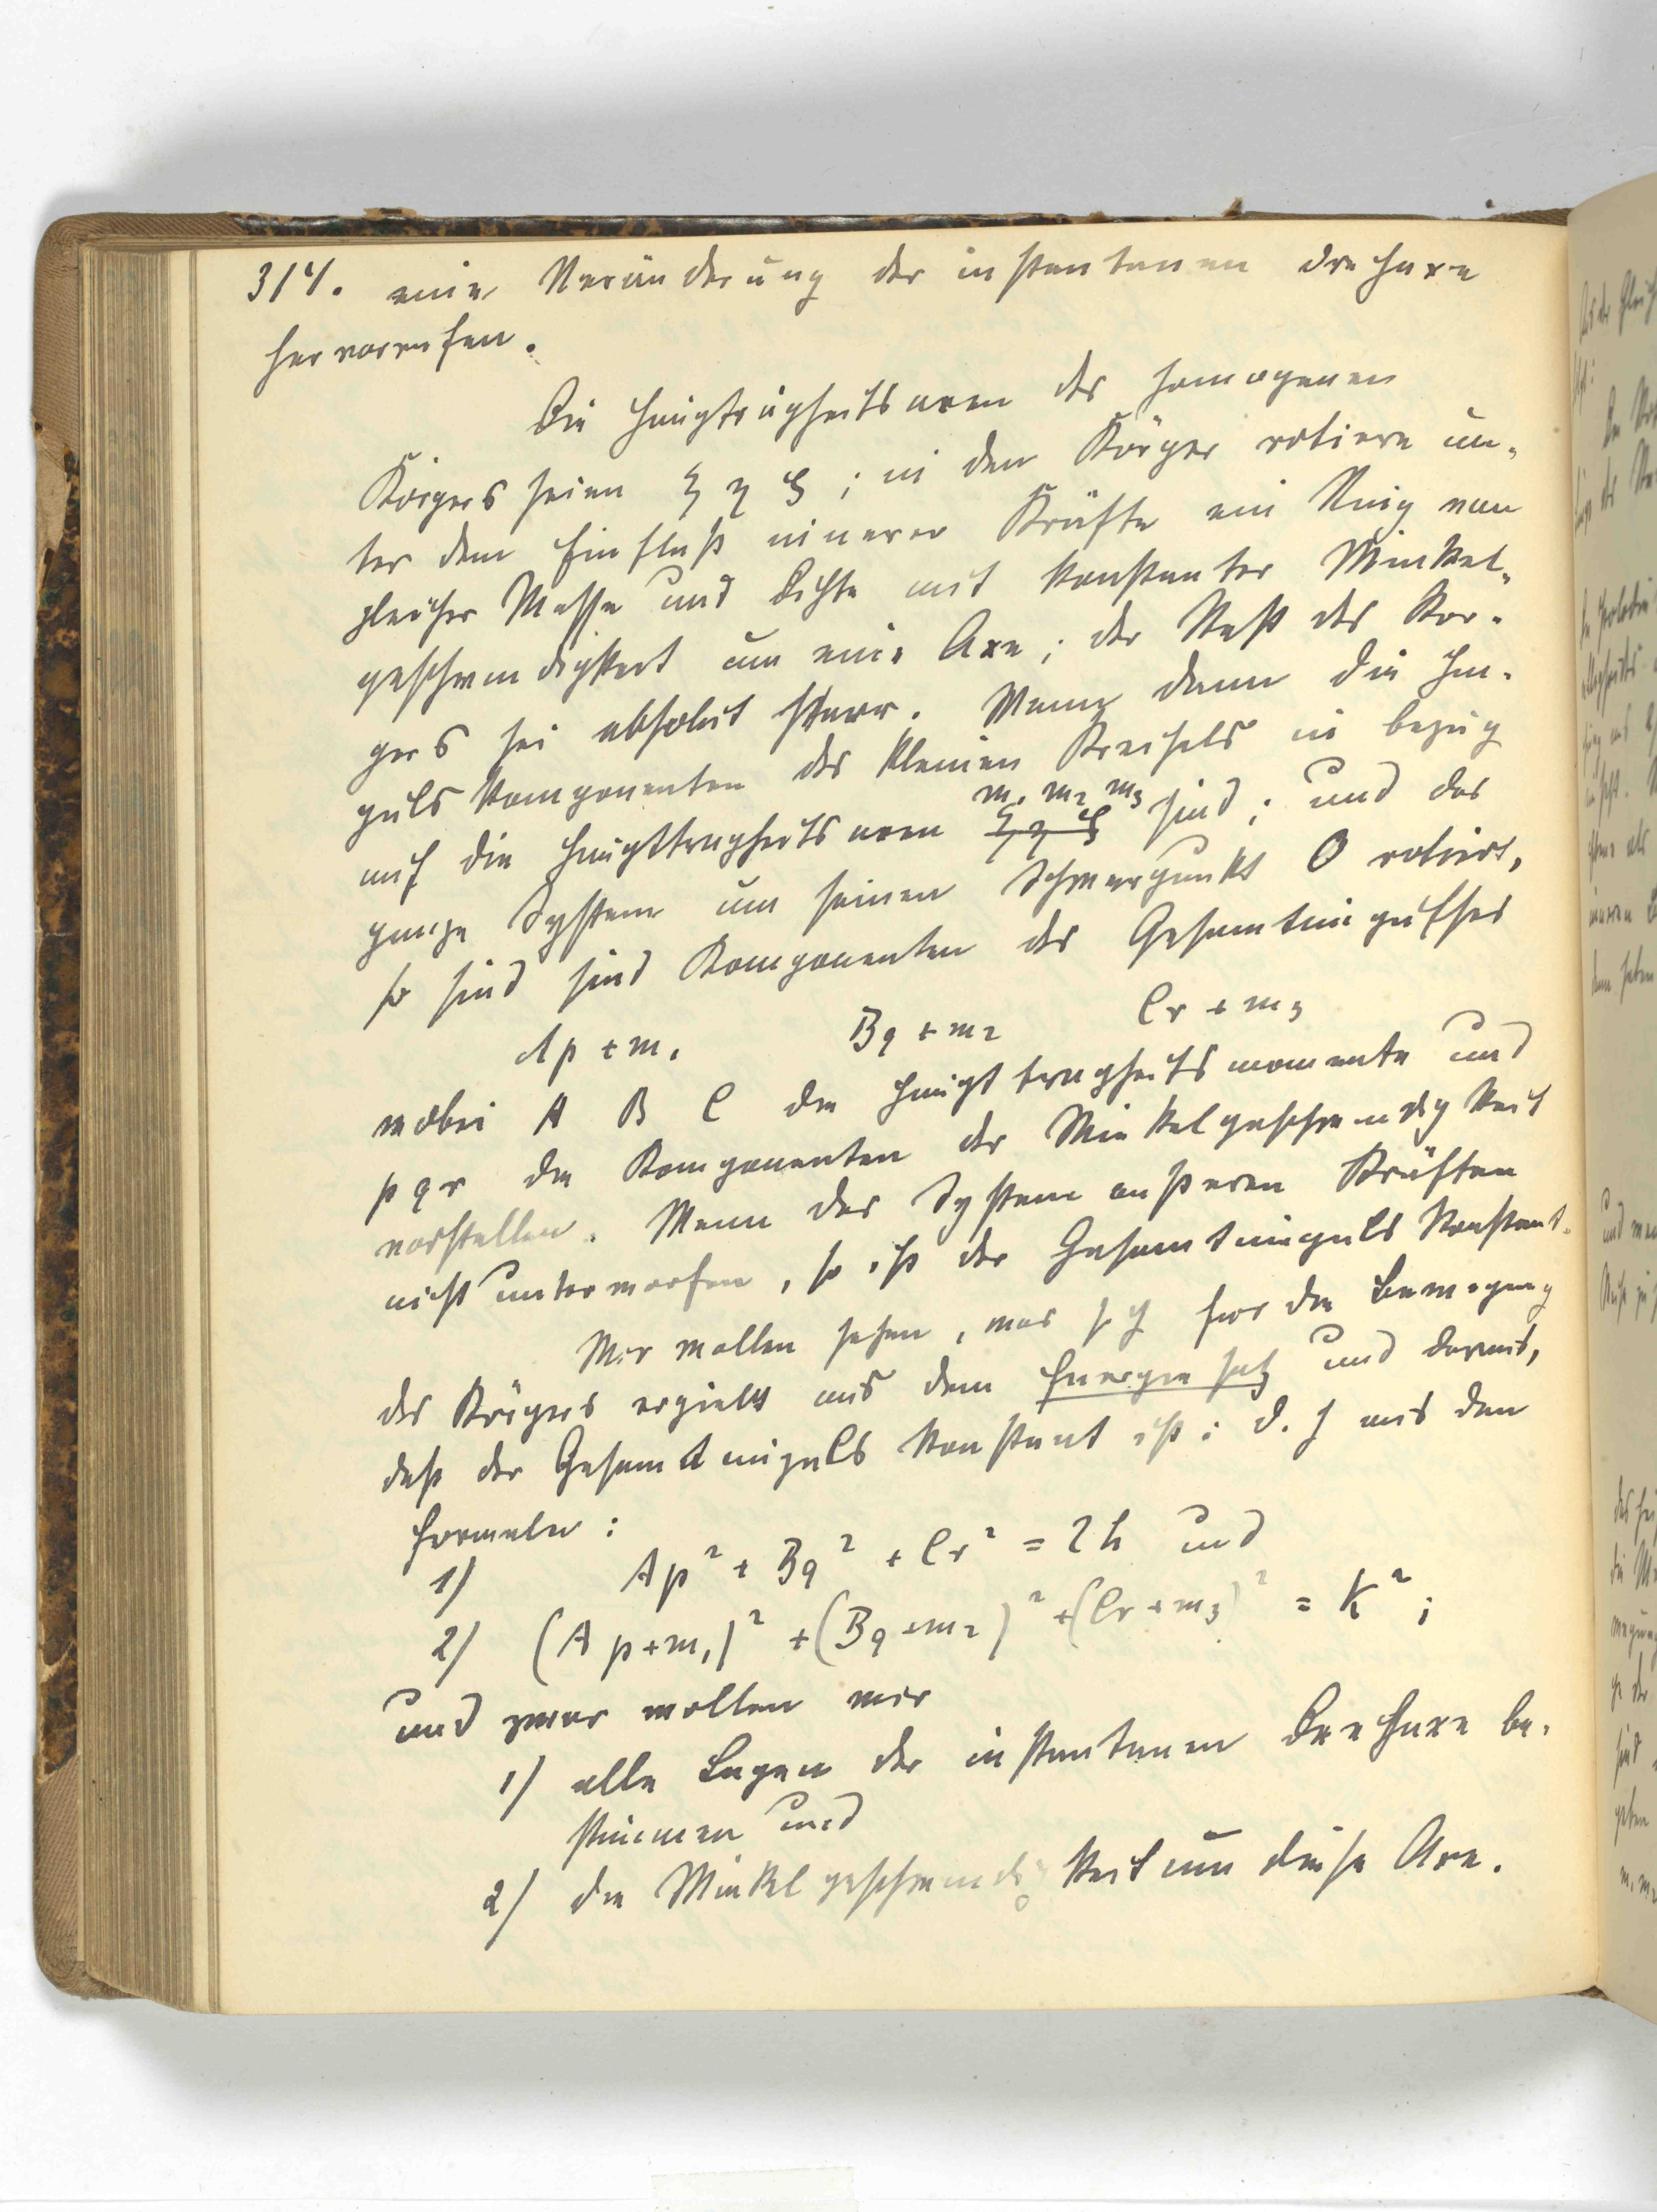 314. eine Veränderung der instantanen Drehaxe
hervorrufen.
Die Hauptträgheitsaxen des homogenen
Körpers seien ξ η ζ ; in dem Körper rotiere un-
ter dem Einfluß innerer Kräfte ein Ring von
gleicher Masse und Dichte mit konstanter Winkel-
geschwindigkeit um eine Axe ; der Rest des Kör-
pers sei absolut starr. Wenn dann die Im-
pulskomponenten des kleinen Kreisels in bezug
auf die Hauptträgheitsaxen ξ η ζ m₁ m₂ m₃ sind ; und das
ganze System um seinen Schwerpunkt O rotiert,
so sind sind Komponenten des Gesamtimpulses
Ap + m₁ Bq + m₂ Cr + m₃
wobei A B C die Hauptträgheitsmomente und
p q r die Komponenten der Winkelgeschwindigkeit
vorstellen. Wenn das System äußeren Kräften
nicht unterworfen, so ist der Gesamtimpuls konstant.
Wir wollen sehen, was sich für die Bewegung
des Körpers ergiebt aus dem Energiesatz und daraus,
daß der Gesamtimpuls konstant ist : d. h aus den
Formeln :
1) Ap² + Bq² + Cr² = 2h und
2) (Ap + m₁)² + (Bq + m₂)² + (Cr + m₃)² = K² ;
und zwar wollen wir
1) alle Lagen der instantanen Drehaxe be-
stimmen und
2) die Winkelgeschwindigkeit um diese Axe.